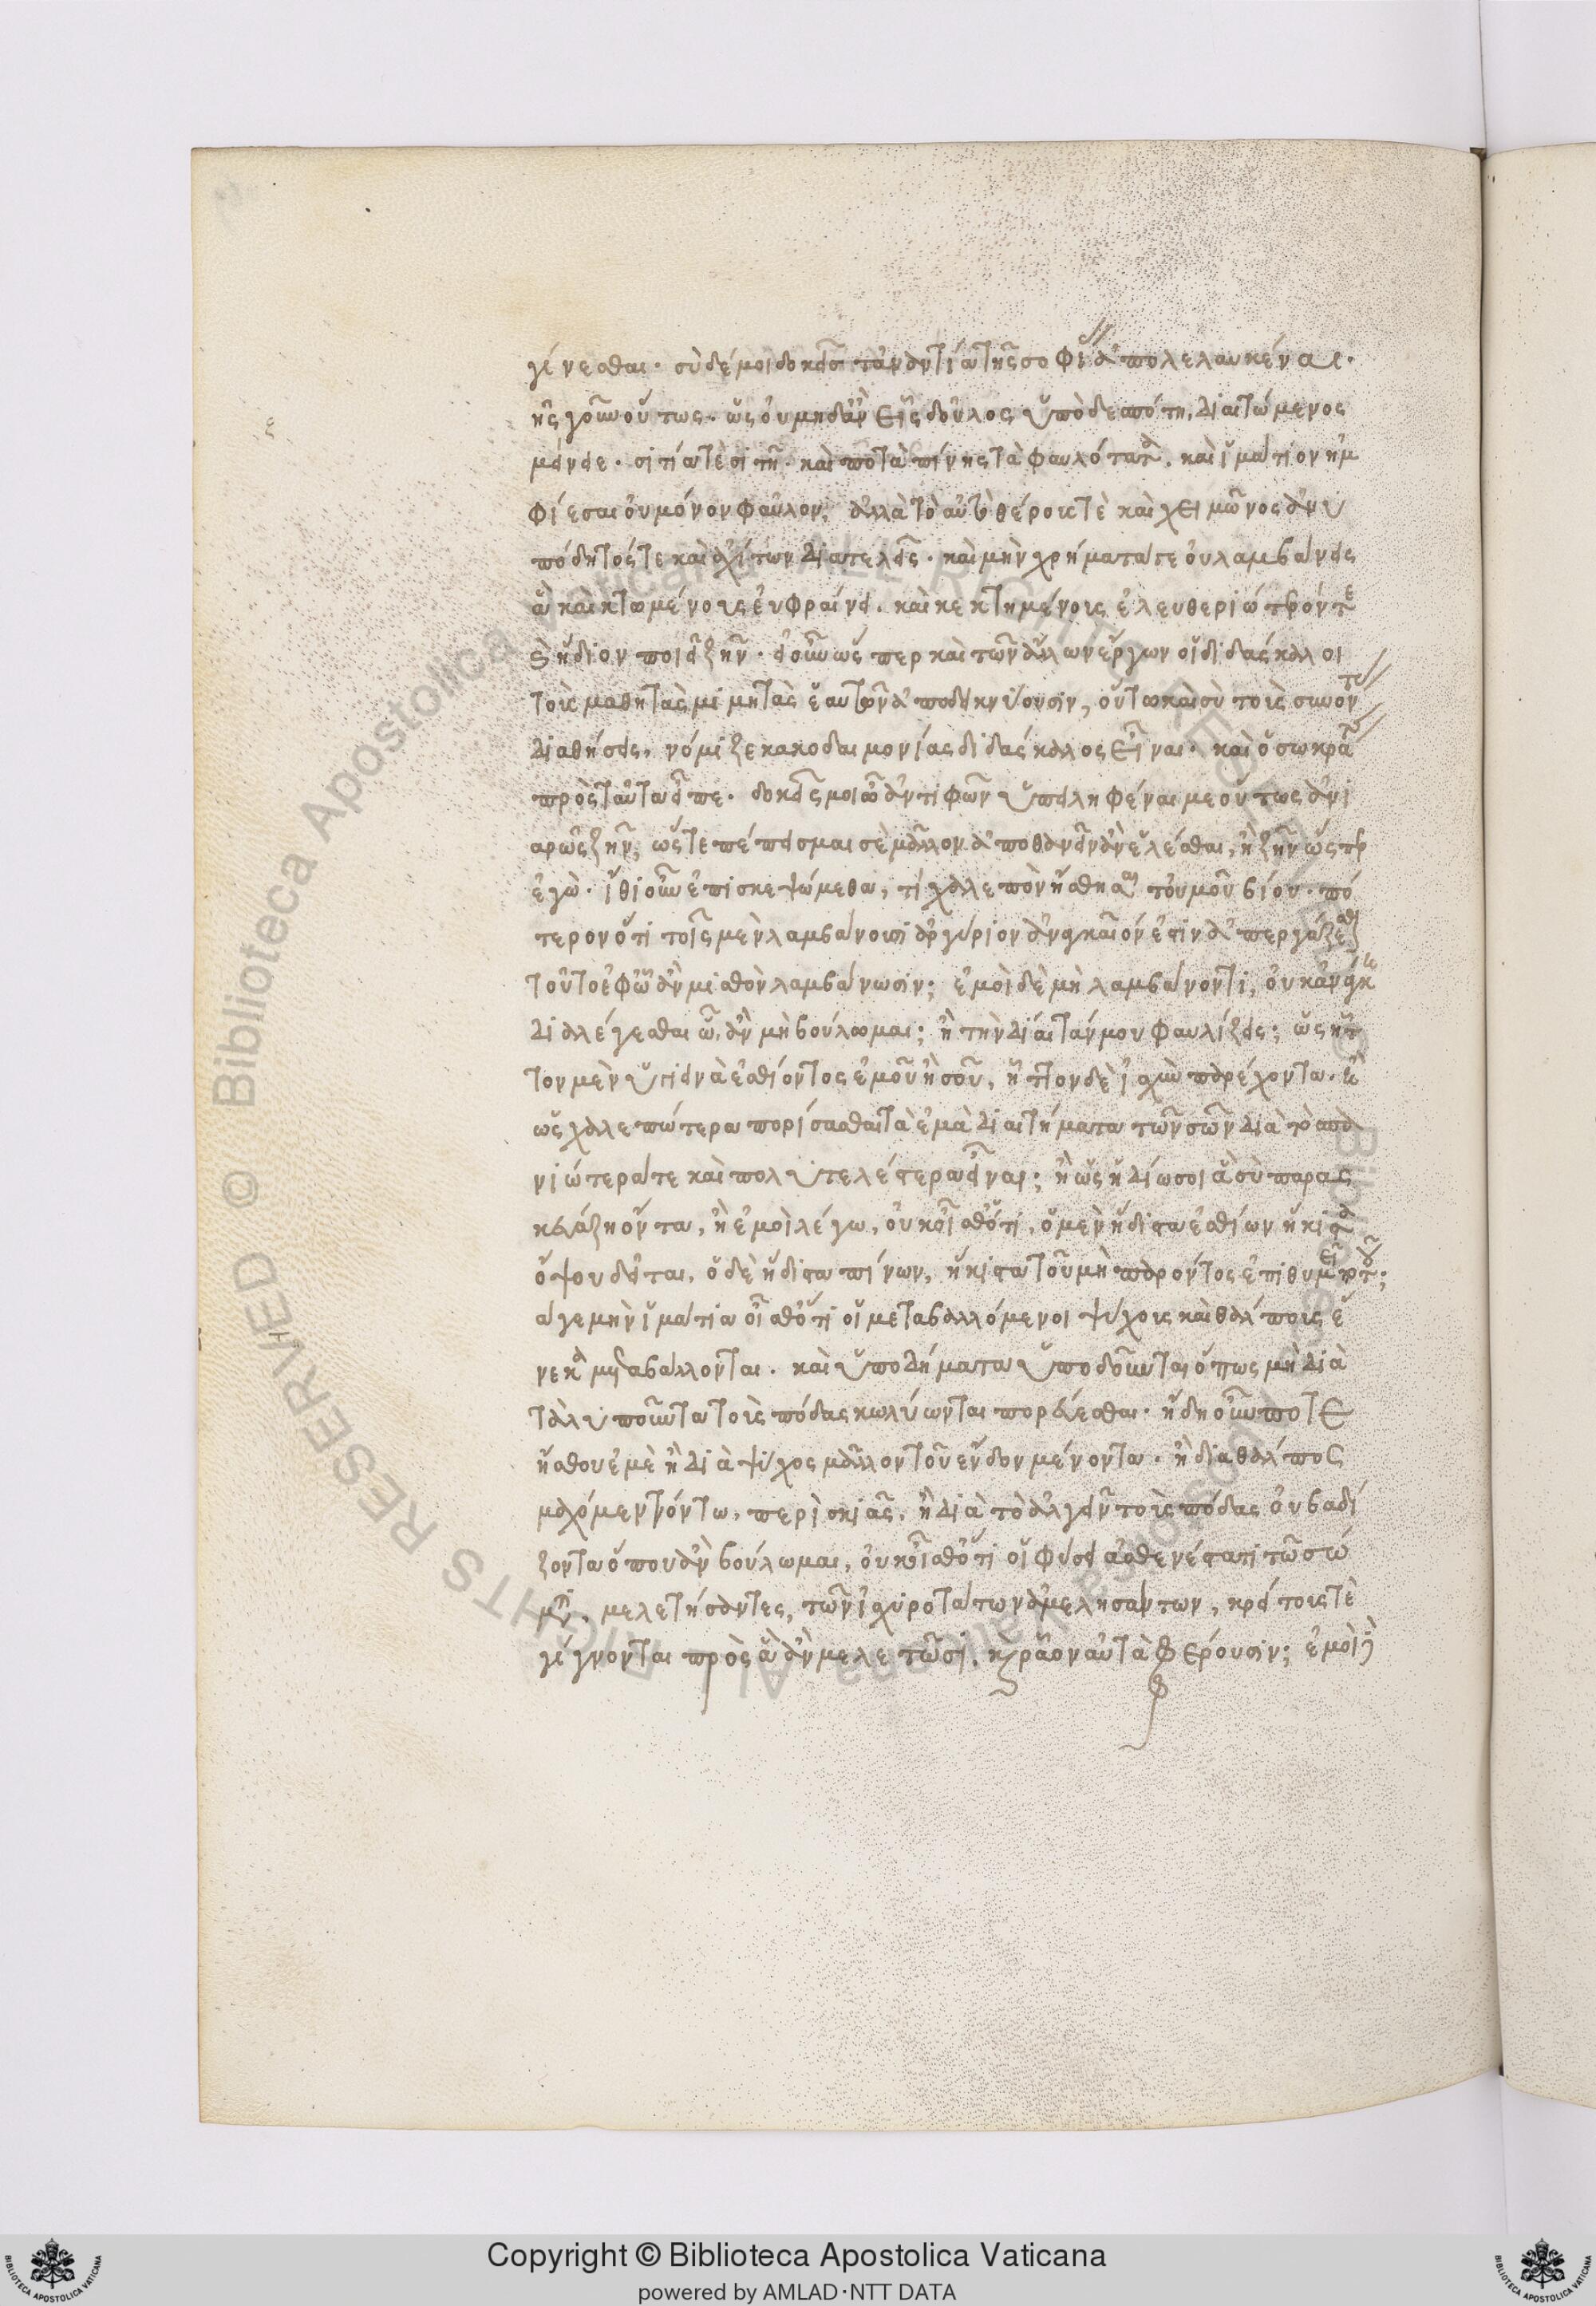 γένεσθαι· σὺ δέ μοι δοκεῖς τἀναντία τῆς σοφίας ἀπολελαυκέναι·
ζῇς γοῦν οὕτως· ὡς οὐ μηδ' ἂν εἷς δοῦλος ὑπὸ δεσπότῃ διαιτώμενος
μείνειε· σιτία τὲ σιτῇ· καὶ ποτὰ πίνῃς τὰ φαυλότατα· καὶ ἱμάτιον ἠμ
φίεσαι οὐ μόνον φαῦλον, ἀλλὰ τὸ αὐτὸ θέρους τὲ καὶ χειμῶνος ἀνυ
πόδητός τε καὶ ἀχίτων διατελεῖς· καὶ μὴν χρήματά τε οὐ λαμβάνεις
ἃ καὶ κτωμένους εὐφραίνει· καὶ κεκτημένους ἐλευθεριώτερόν τε
καὶ ἥδιον ποιεῖ ζῆν· εἰ οὖν ὥσπερ καὶ τῶν ἄλλων ἔργων οἱ διδάσκαλοι
τοὺς μαθητὰς μιμητὰς ἑαυτῶν ἀποδεικνύουσιν, οὕτω καὶ σὺ τοὺς συνόντας
διαθήσεις, νόμιζε κακοδαιμονίας διδάσκαλος εἶναι· καὶ ὁ σωκράτης
πρὸς ταῦτα εἶπε· δοκεῖς μοι ὦ ἀντιφῶν ὑπειληφέναι με οὕτως ἀνι
αρῶς ζῆν, ὥστε πέπεισμαι σὲ μᾶλλον ἀποθανεῖν ἂν ἑλέσθαι, ἢ ζῆν ὥσπερ
ἐγὼ· ἴθι οὖν ἐπισκεψώμεθα, τί χαλεπὸν ᾔσθησαι τοὐμοῦ βίου· πό
τερον ὅτι τοῖς μὲν λαμβάνουσιν ἀργύριον ἀναγκαῖόν ἐστιν ἀπεργάζεσθαι
τοῦτο ἐφ' ᾧ ἂν μισθὸν λαμβάνωσιν; ἐμοὶ δὲ μὴ λαμβάνοντι, οὐκ ἀνάγκη
διαλέγεσθαι ᾧ ἂν μὴ βούλωμαι; ἢ τὴν δίαιτάν μου φαυλίζεις; ὡς ἧτ
τον μὲν ὑγιεινὰ ἐσθίοντος ἐμοῦ ἢ σοῦ, ἧττον δὲ ἰσχὺν παρέχοντα· ἢ
ὡς χαλεπώτερα πορίσασθαι τὰ ἐμὰ διαιτήματα τῶν σῶν διὰ τὸ σπα
νιώτερά τε καὶ πολυτελέστερα εἶναι; ἢ ὡς ἡδίω σοι ἃ σὺ παρασ
κευάζῃ ὄντα, ἢ ἐμοὶ λέγω, οὐκ οἶσθ' ὅτι, ὁ μὲν ἥδιστα ἐσθίων ἥκιστα
ὄψου δεῖται, ὁ δὲ ἥδιστα πίνων, ἥκιστα τοῦ μὴ παρόντος ἐπιθυμεῖ ποτοῦ;
ἅ γε μὴν ἱμάτια οἶσθ' ὅτι οἱ μεταβαλλόμενοι ψύχους καὶ θάλπους ἕ
νεκα μεταβάλλονται· καὶ ὑποδήματα ὑποδοῦνται ὅπως μὴ διὰ
τὰ λυποῦντα τοὺς πόδας κωλύωνται πορεύεσθαι· ἤδη οὖν ποτε
ᾔσθου ἐμὲ ἢ διὰ ψύχος μᾶλλον τοῦ ἔνδον μένοντα· ἢ διὰ θάλπος
μαχόμενόν τῳ περὶ σκιᾶς, ἢ διὰ τὸ ἀλγεῖν τοὺς πόδας οὐ βαδί
ζοντα ὅπου ἂν βούλωμαι, οὐκ οἶσθ' ὅτι οἱ φύσει ἀσθενέστατοι τῷ σώ
ματι, μελετήσαντες, τῶν ἰσχυροτάτων ἀμελησάντων, κρείττους τὲ
γίγνονται πρὸς ἃ ἂν μελετῶσι, καὶ ῥᾷον αὐτὰ φέρουσιν; ἐμοὶ δὲ